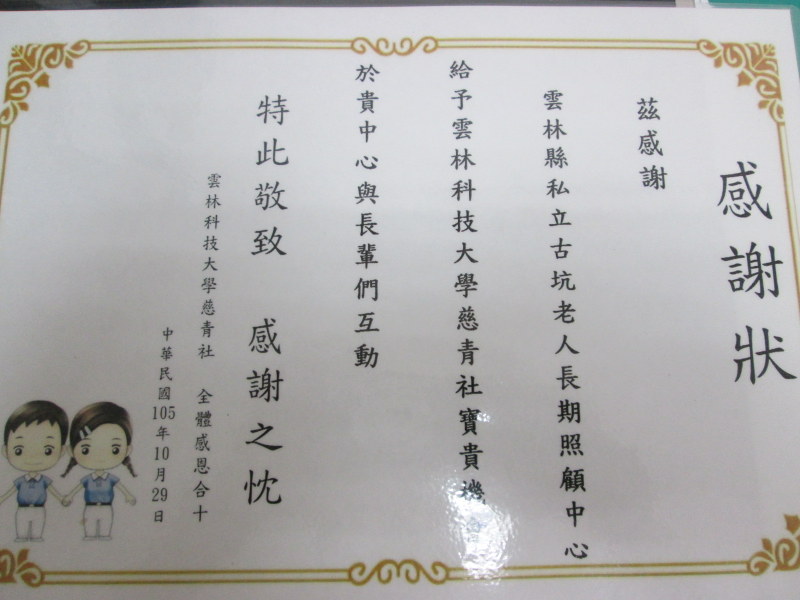 感謝狀
茲感謝
雲林縣私立古坑老人長期照顧中心
給予雲林科技大學慈青社寶貴機會
於貴中心與長輩們互動
特此敬致 感謝之忱
雲林科技大學慈青社 全體感恩合十
中華民國105年10月29日